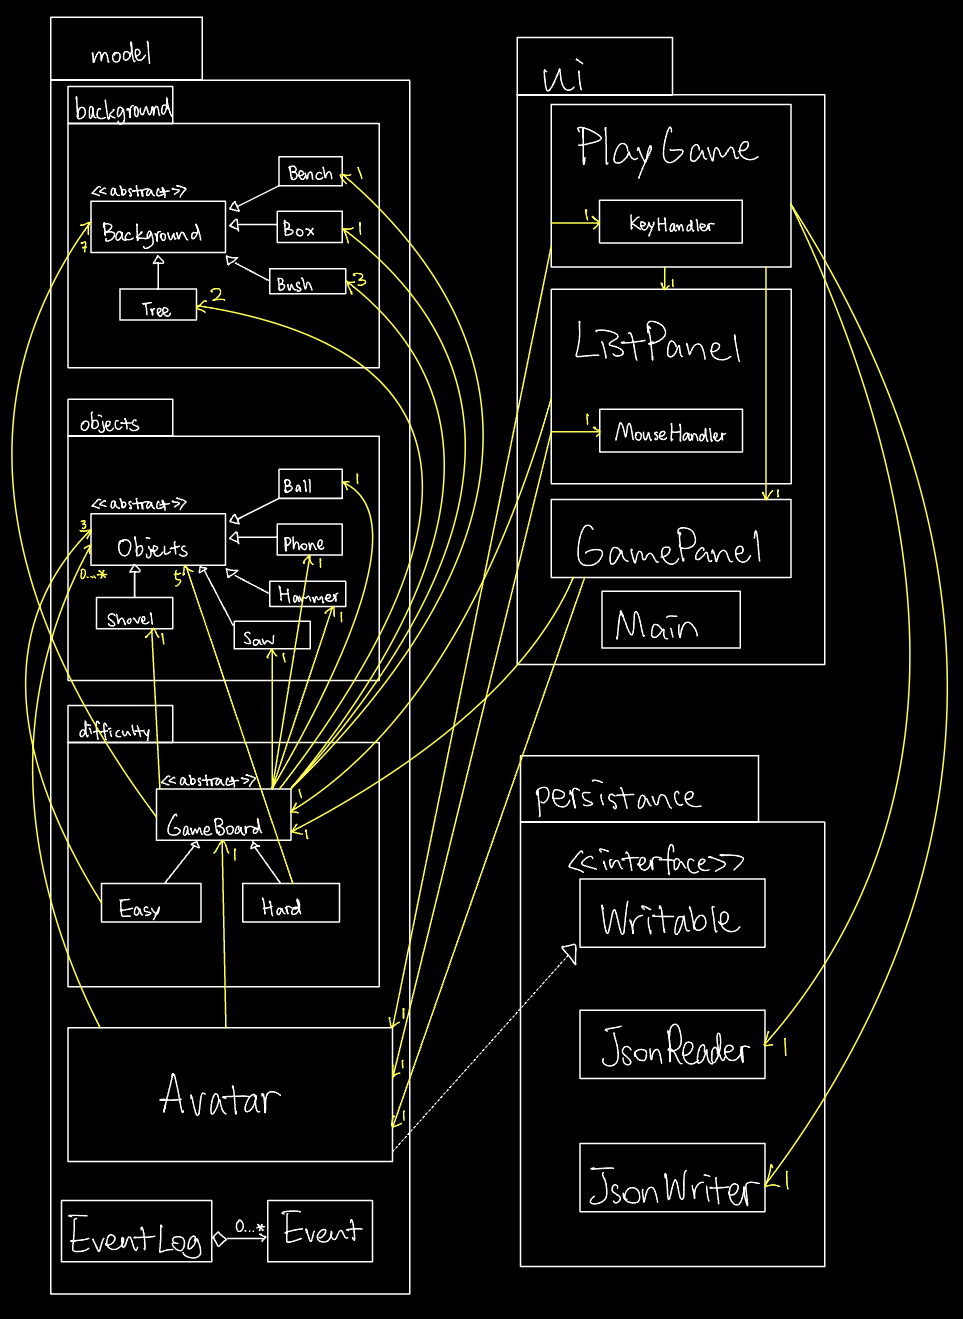 model
background
<<abstract>>
Background
7
Bench
1
Box
1
Bush
3
Tree
2
objects
<<abstract>>
Objects
3
0...*
5
Ball
1
Phone
1
Hammer
1
Shovel
1
Saw
1
difficulty
<<abstract>>
GameBoard
1
1
1
Easy
Hard
Avatar
1
1
1
EventLog
0...*
Event
ui
PlayGame
1
KeyHandler
1
ListPanel
1
MouseHandler
1
GamePanel
Main
persistance
<<interface>>
Writable
JsonReader
1
JsonWriter
1